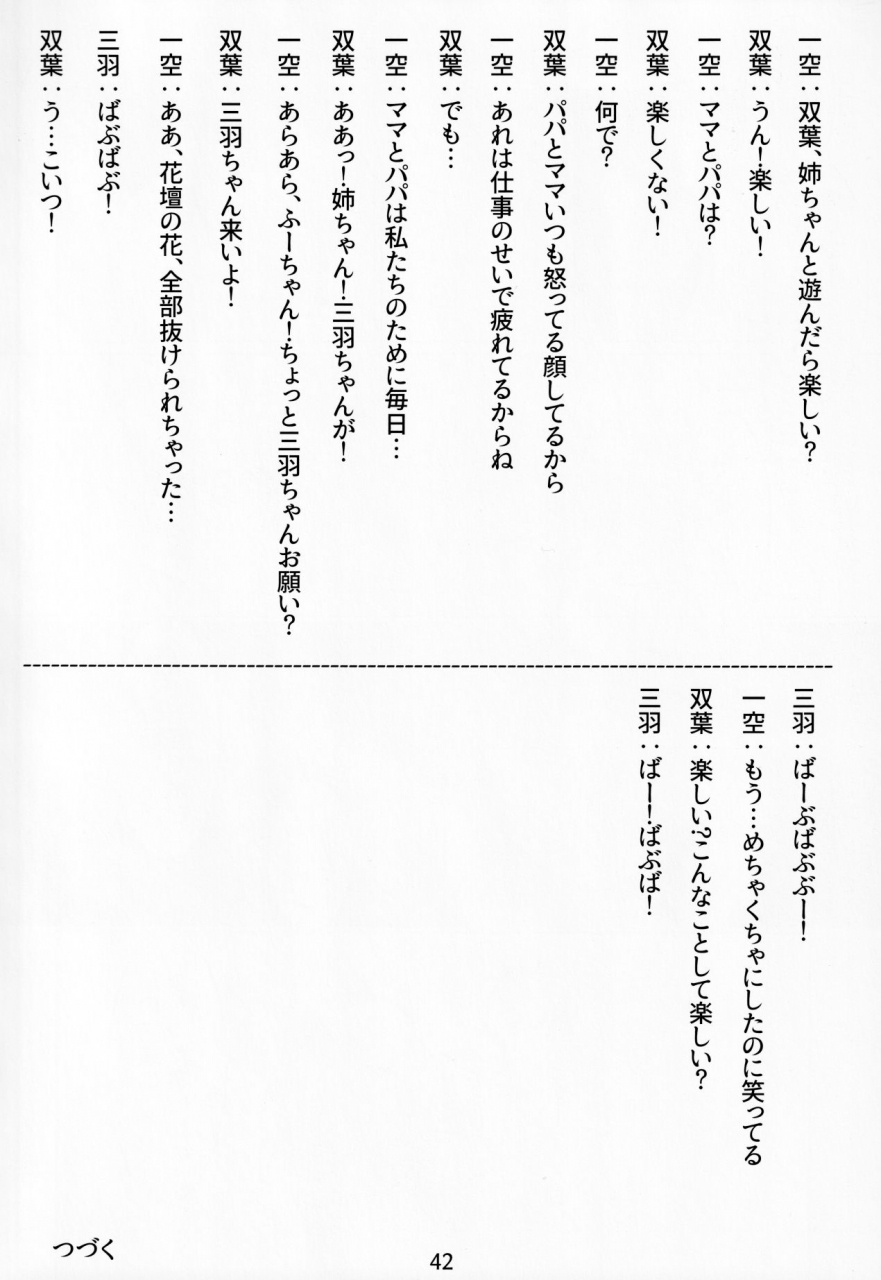 一空：双葉、姉ちゃんと遊んだら楽しい？
双葉：うん！楽しい！
一空：ママとパパは？
双葉：楽しくない！
一空：何で？
双葉：パパとママいつも怒ってる顔してるから
一空：あれは仕事のせいで疲れてるからね
双葉：でも…
一空：ママとパパは私たちのために毎日…
双葉：ああっ！姉ちゃん！三羽ちゃんが！
一空：あらあら、ふーちゃん！ちょっと三羽ちゃんお願い？
双葉：三羽ちゃん来いよ！
一空：ああ、花壇の花、全部抜けられちゃった…
三羽：ばぶばぶ！
双葉：う…こいつ！
三羽：ばーぶばぶぶー！
一空：もう…めちゃくちゃにしたのに笑ってる
双葉：楽しい？こんなことして楽しい？
三羽：ばー！ばぶば！
つづく
42